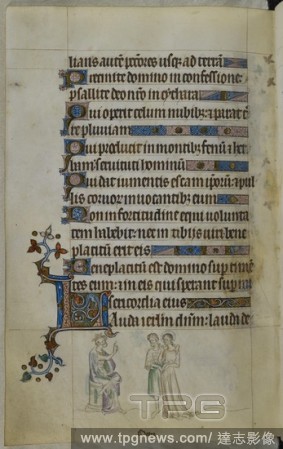 lians autem peccatores usq; ad terrā
Precinite domino in confessione
psallite deo nr̄o in cythara
Qui operit celum nubib; & parat t̄re
te pluviam
Qui producit in montib; fenū & her
bam servituti hominū
Qui dat iumentis escam ip̄orū & pul
lis corvor̄ invocantib; eum
Non in fortitudine equi volunta
tem habebit nec in tibiis viri bene
placitū erit eis
Beneplacitū est domino sup̄ timē
tes eum & in eis qui sperant sup̄ mi
sericordia eius
Lauda ierl̄m dn̄m: lauda de
TPG
www.tpgnews.com/達志影像